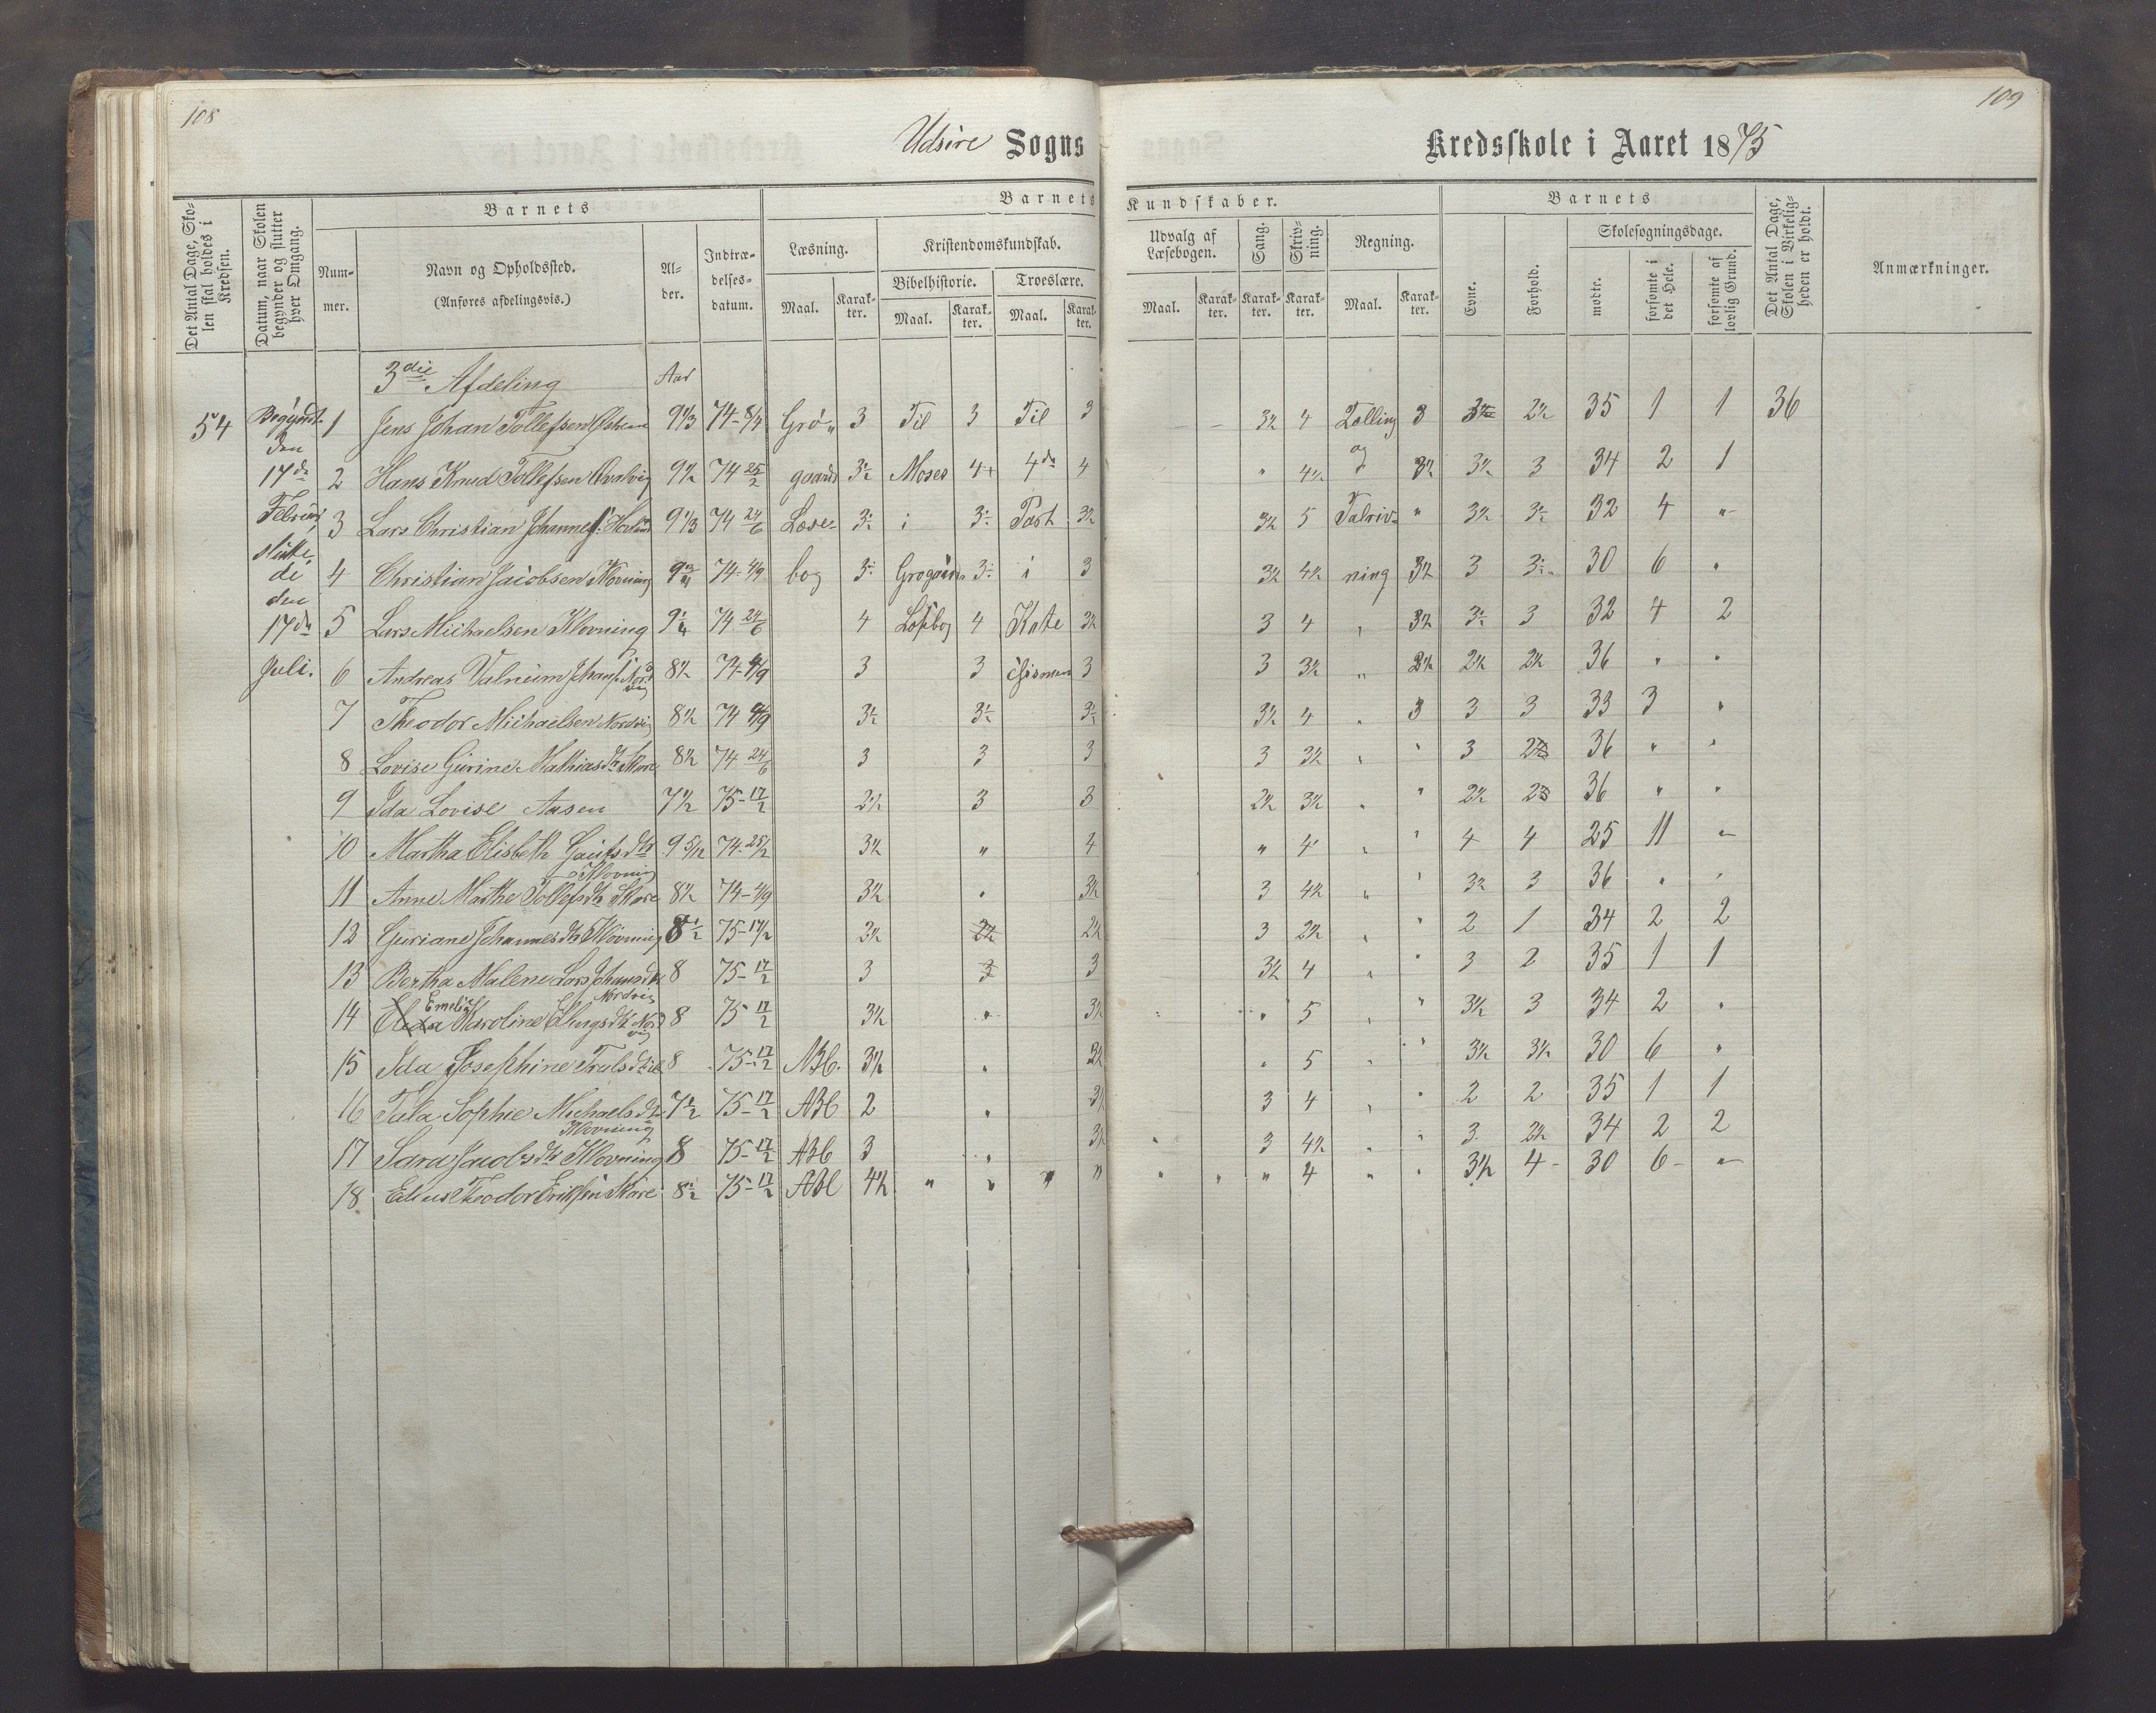 108
109
Udsire Sogns
Kredsskole i Aaret 1875
Det Antal Dage, Skolen skal holdes i Kredsen.
Datum, naar Skolen begynder og slutter hver Omgang.
Barnets
Barnets Kundskaber.
Barnets
Det Antal Dage, Skolen i Virkeligheden er holdt.
Anmærkninger.
Nummer.
Navn og Opholdssted.
(Anføres afdelingsvis.)
Alder.
Indtrædelsesdatum.
Læsning.
Kristendomskundskab.
Bibelhistorie.
Troeslære.
Udvalg af Læsebogen.
Sang.
Skrivning.
Regning.
Evne.
Forhold.
Skolesøgningsdage.
mødte.
forsømte i det Hele.
forsømte af lovlig Grund.
Maal. Karakter. Maal. Karakter. Maal. Karakter. Maal. Karakter. Karakter. Karakter. Maal. Karakter.
3die Afdeling Aar
54 Begyndt 1 Jens Johan Tollefsen 9 1/3 74-8/4 Grø- 3 Til 3 Til 3 - - 3½ 4 Tælling 3 2½ 35 1 1 36
den
17de 2 Hans Knud Tollefsen 9½ 74 25/2 gaards 3½ Moses 4+ 4de 4 " 4½ og 3½ 3½ 3 34 2 1
Februar 3 Lars Christian 9 1/3 74 24/6 Læse- 3½ i 3½ Part 3½ 3½ 5 Talriv- " 3½ 3½ 32 4 "
slutte
de 4 Christian Jacobsen Klovning 74-4/9 bog 3½ 3½ i 3 3½ 4½ ning 3½ 3 3½ 30 6 "
den
17de 5 Lars Michaelsen Klovning 9¼ 74 24/6 4 4 Kate 3½ 3 4 " 3½ 3½ 3 32 4 2
Juli. 6 Andreas 8½ 74-4/9 3 3 3 3 3½ " 2½ 2½ 2½ 36 " "
7 Theodor Michaelsen Nordvig 8½ 74 4/9 3½ 3½ 3½ 3½ 4 " 3 3 3 33 3 "
8 Lovise Gurine Mathiasdtr Skare 8½ 74 24/6 3 3 3 3 3½ " " 3 36 " "
9 Ida Lovise Aasen 7½ 75-17/2 2½ 3 3 2½ 3½ " " 2½ 36 " "
10 Martha Elisbeth Gautsdtr 9 5/12 74-25/2 3½ " 4 " 4 " " 4 4 25 11 "
Klovning
11 Anne Marthe Tollefsdtr Skare 8½ 74-4/9 3½ " 3½ 3 4½ " " 3½ 3 36 " "
12 Guriane Johannesdtr Klovning 8½ 75-17/2 3½ 2½ 2½ 3 2½ " " 2 1 34 2 2
13 Bertha Malene 8 75-17/2 3 3 3 3½ 4 " " 3 2 35 1 1
Nordvig
Emelie
14 Karoline Nordvig 8 75 17/2 3½ " 3½ " 5 " " 3½ 3 34 2 "
15 Ida Josephine 8 75-17/2 ABC. 3½ " " 5 " " 3½ 3½ 30 6 "
16 Sophie Michaelsdtr 7½ 75-17/2 ABC 2 " 3 4 " " 2 2 35 1 1
Klovning
17 Sara Jacobsdtr Klovning 8 75-17/2 ABC 3 " " 3 4½ " " 3 2½ 34 2 2
18 Theodor Eriksen Skare 8½ 75-17/2 ABC 4½ " " " " " " " 4 " " 3½ 4- 30 6- "